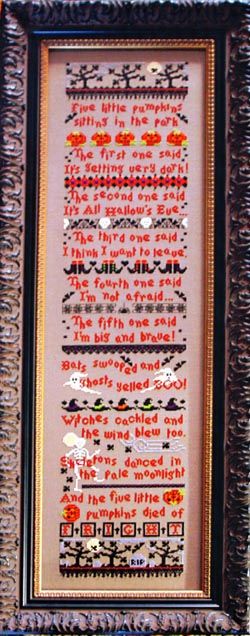 Five little pumpkins
sitting in the park
The first one said
It's getting very dark!
The second one said
It's All Hallow's Eve.
The third one said
I think I want to leave.
The fourth one said
I'm not afraid...
The fifth one said
I'm big and brave!
Bats swooped and
Ghosts yelled BOO!
Witches cackled and
the wind blew too.
Skeletons danced in
the pale moonlight
And the five little
pumpkins died of
FRIGHT
RIP